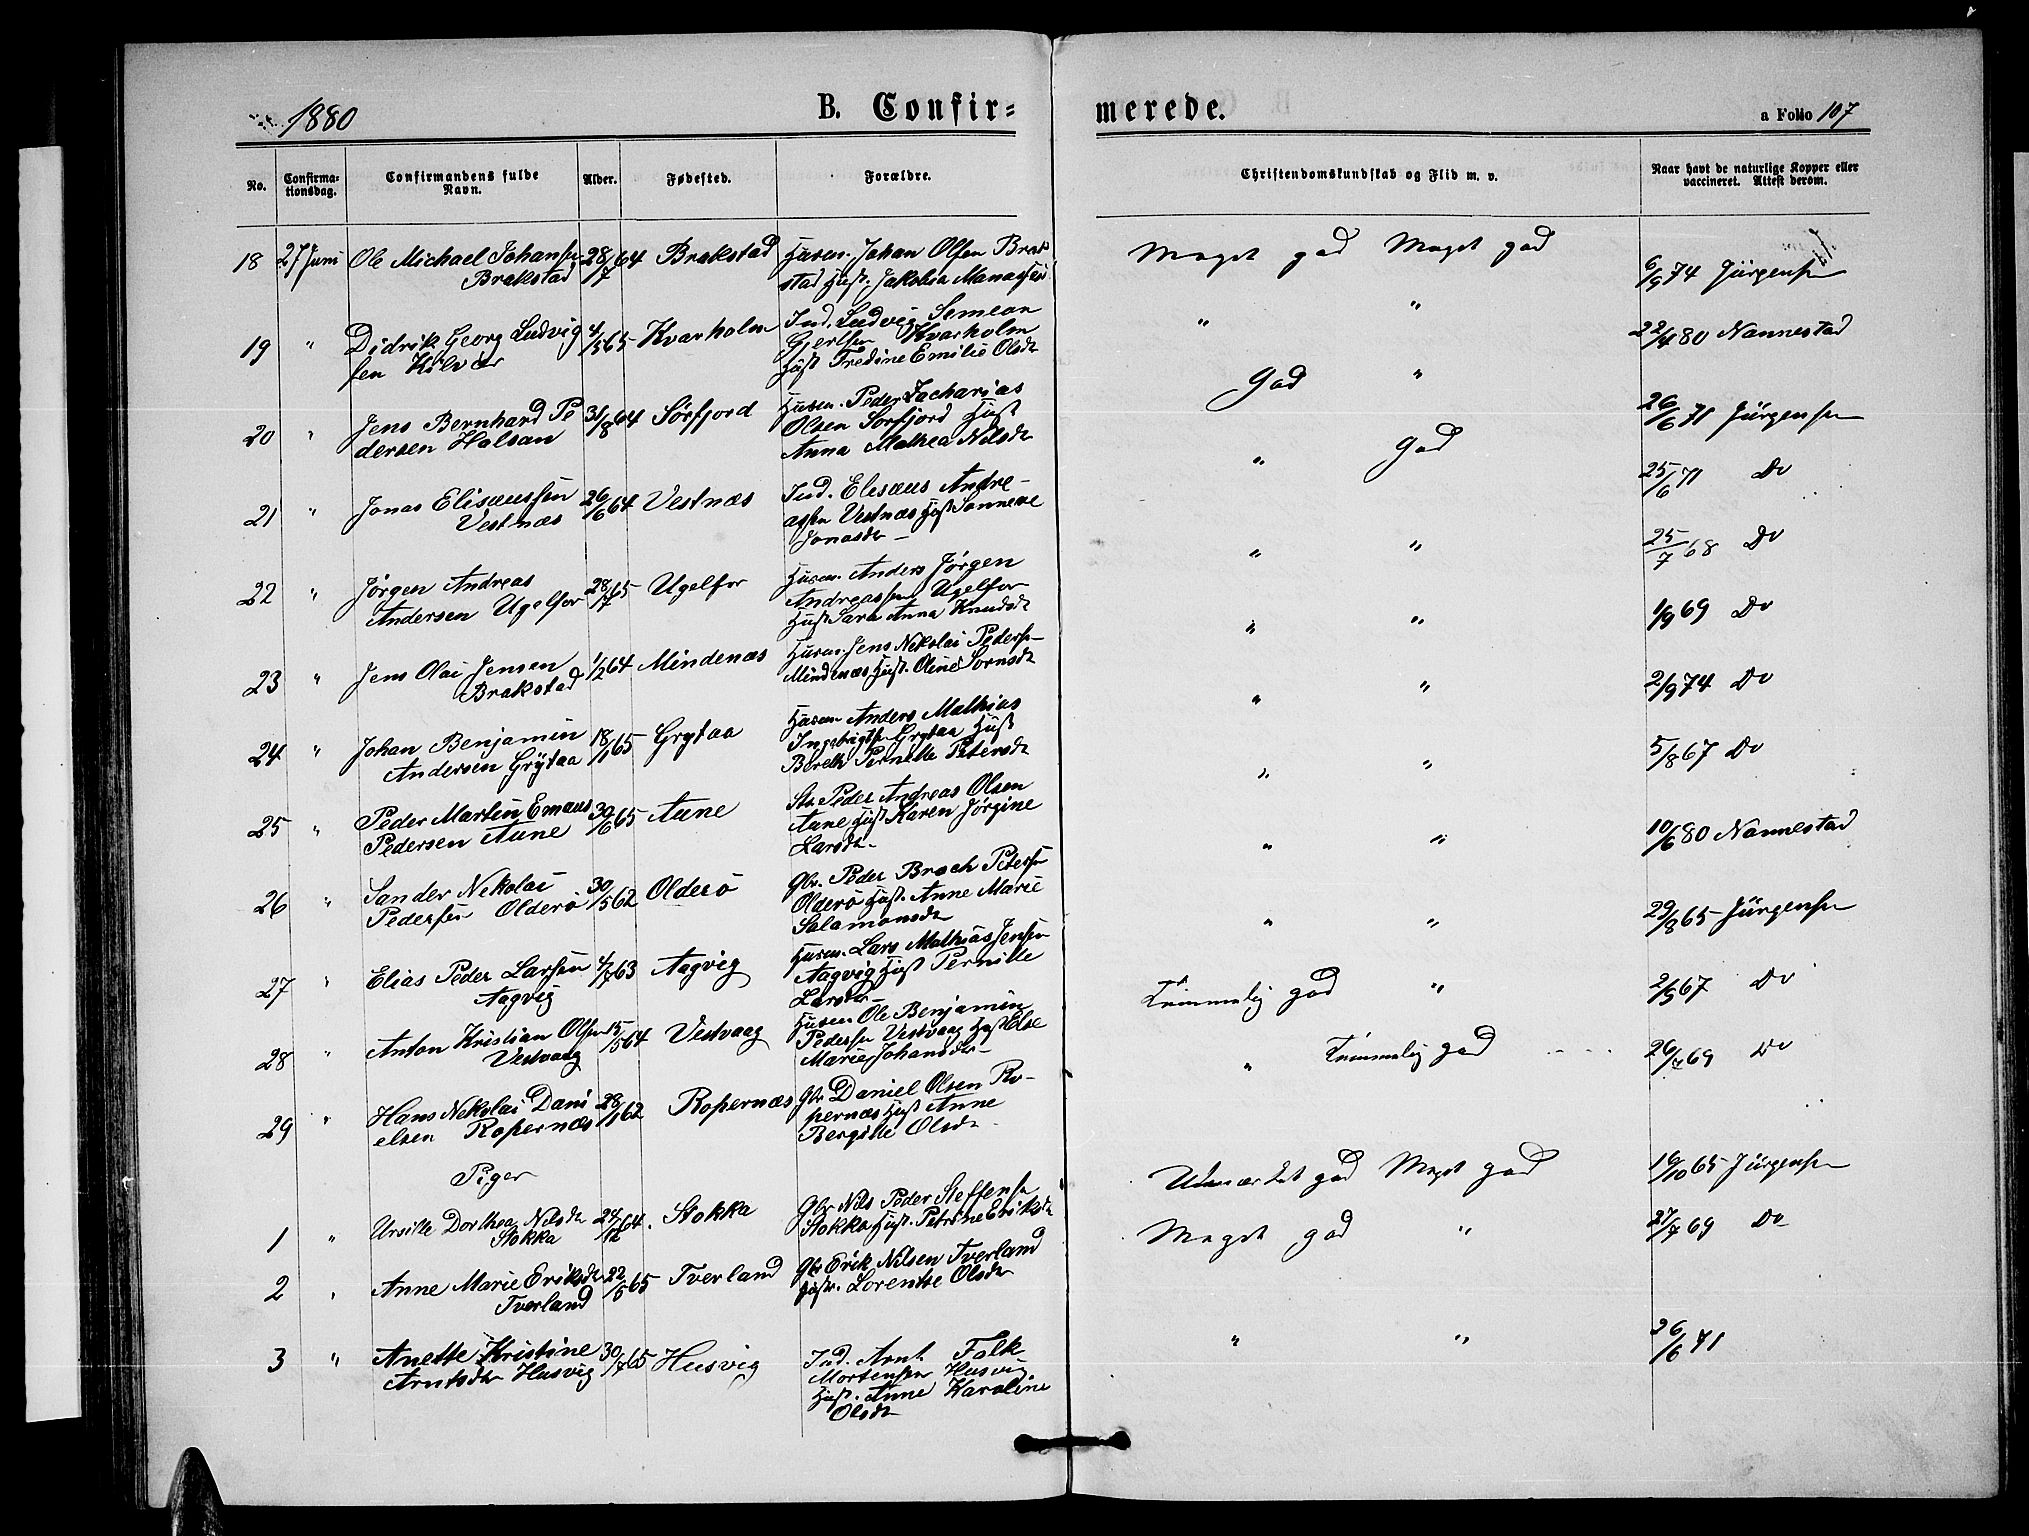 1880
B. Confir=
merede.
a Folio 107
No.
Confirma-
tionsdag.
Confirmandens fulde
Navn.
Alder.
Fødested.
Forældre.
Christendomskundskab og Flid m. v.
Naar havt de naturlige Kopper eller
vaccineret. Attest derom.
18 27 Juni Ole Michael Johansen 28/7 64 Brakstad Husm. Johan Olsen Brak Meget god Meget god
Brakstad stad Hust. Jakobia 6/9 74 Jürgensen
19 " Didrik Georg Ludvig 4/5 65 Kvarholm Ind. Ludvig Semeon " " 22/4 80 Nannestad
sen Kilvær Gjertsen Kvarholm
Hust Fredine Emilie Olsdr
20 " Jens Bernhard Pe 31/8 64 Sörfjord Husm. Peder Zacharias God " 26/6 71 Jürgensen
dersen Halsan Olsen Sörfjord Hust
Anna Mathea Nilsdr
21 " Jonas Elisæussen 26/6 64 Vestnæs Ind. Elisæus Andre- " God 25/6 71 Do
Vestnæs assen Vestnæs Hust
Jonasdr
22 " Jørgen Andreas 28/7 65 Ugelfor Husm. Anders Jørgen " " 25/7 68 Do
Andersen Ugelfor Andreassen Ugelfor
Hust Sara Anna Knudsdr
23 " Jens Olai Jensen 1/2 64 Mindenæs Husm. Jens Nekolai Peders- " " 1/9 69 Do
Brakstad Mindenæs Hust. Oline
24 " Johan Benjamin 18/1 65 Grytaa Husm Anders Mathias " " 2/9 74 Do
Andersen Grÿtaa Ingebrigtsen Grytaa Hust
Bereth Pernille Petersdr
25 " Peder Martin Emaus 30/6 65 Aune Str Peder Andreas Olsen " " 5/8 67 Do
Pedersen Aune Aune Hust Karen Jørgine
Larsdr
26 " Sander Nekolai 30/5 62 Olderö Gbr. Peder Broch Petersen " " 10/6 80 Nannestad
Pedersen Olderö Olderö Hust. Anne Marie
Salamonsdr
27 " Elias Peder Larsen 4/7 63 Aagvig Husm. Lars Mathias Jensen " " 29/8 65 Jürgensen
Aagvig Aagvig Hust Pernille
Larsdr
28 " Anton Kristian Olsen 15/5 64 Vestvaag Husm Ole Benjamin Temmelig god " 2/9 67 Do
Vestvaag Pedersen Vestvaag Hust Else
Marie Johansdr
29 " Hans Nekolai Dani 28/1 62 Ropernæs Gbr Daniel Olsen Ro- " Temmelig god 26/7 69 Do
elsen Ropernæs pernæs Hust Anne
Bergitte Olsdr
Piger
1 " Ursille Dorthea Nilsdr 24/12 64. Stokka Gbr Nils Peder Steffensen Udmærket god Meget god 16/10 65 Jürgensen
Stokka Stokka Hust. Petrine Eriksdr
2 " Anne Marie Eriksdr 22/5 65 Tverland Gbr Erik Nilsen Tverland Meget god " 27/7 69 Do
Tverland Hust. Lorentse Olsdr
3 " Anette Kristine 30/7 65 Husvig Ind. Arnt Falk " " 26/6 71
Arntsdr Husvig Mortensen Husvig
Hust. Anne Karoline
Olsdr